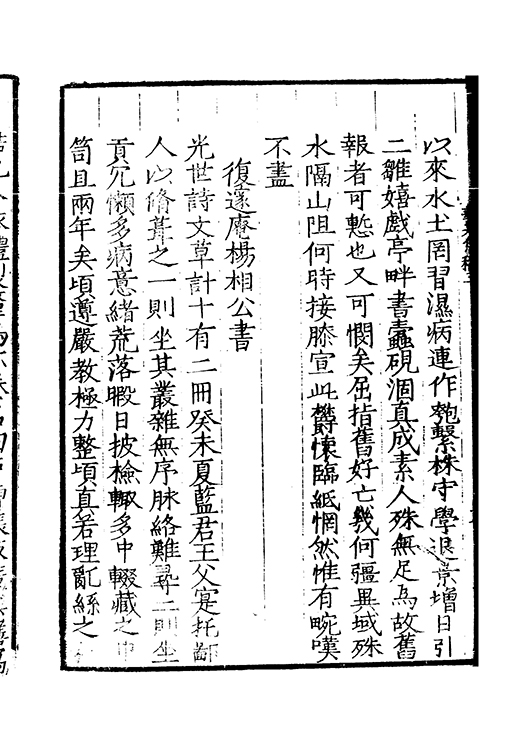 以來水土罔習濕病連作匏繫株守學退景增日引
二雛嬉戲亭畔書蠹硯涸真成素人殊無足為故舊
報者可慙也又可憫矣屈指舊好亡幾何疆異域殊
水隔山阻何時接膝宣此欝懷臨紙惘然惟有畹嘆
不盡
復邃庵楊相公書
光世詩文草計十有二冊癸未夏藍君王父寔托鄙
人以脩葺之一則坐其叢雜無序脉絡難尋二則坐
貢冗懶多病意緒荒落暇日披檢輙多中輟藏之中
笥且兩年矣頃遵嚴教極力整頓真若理亂絲之